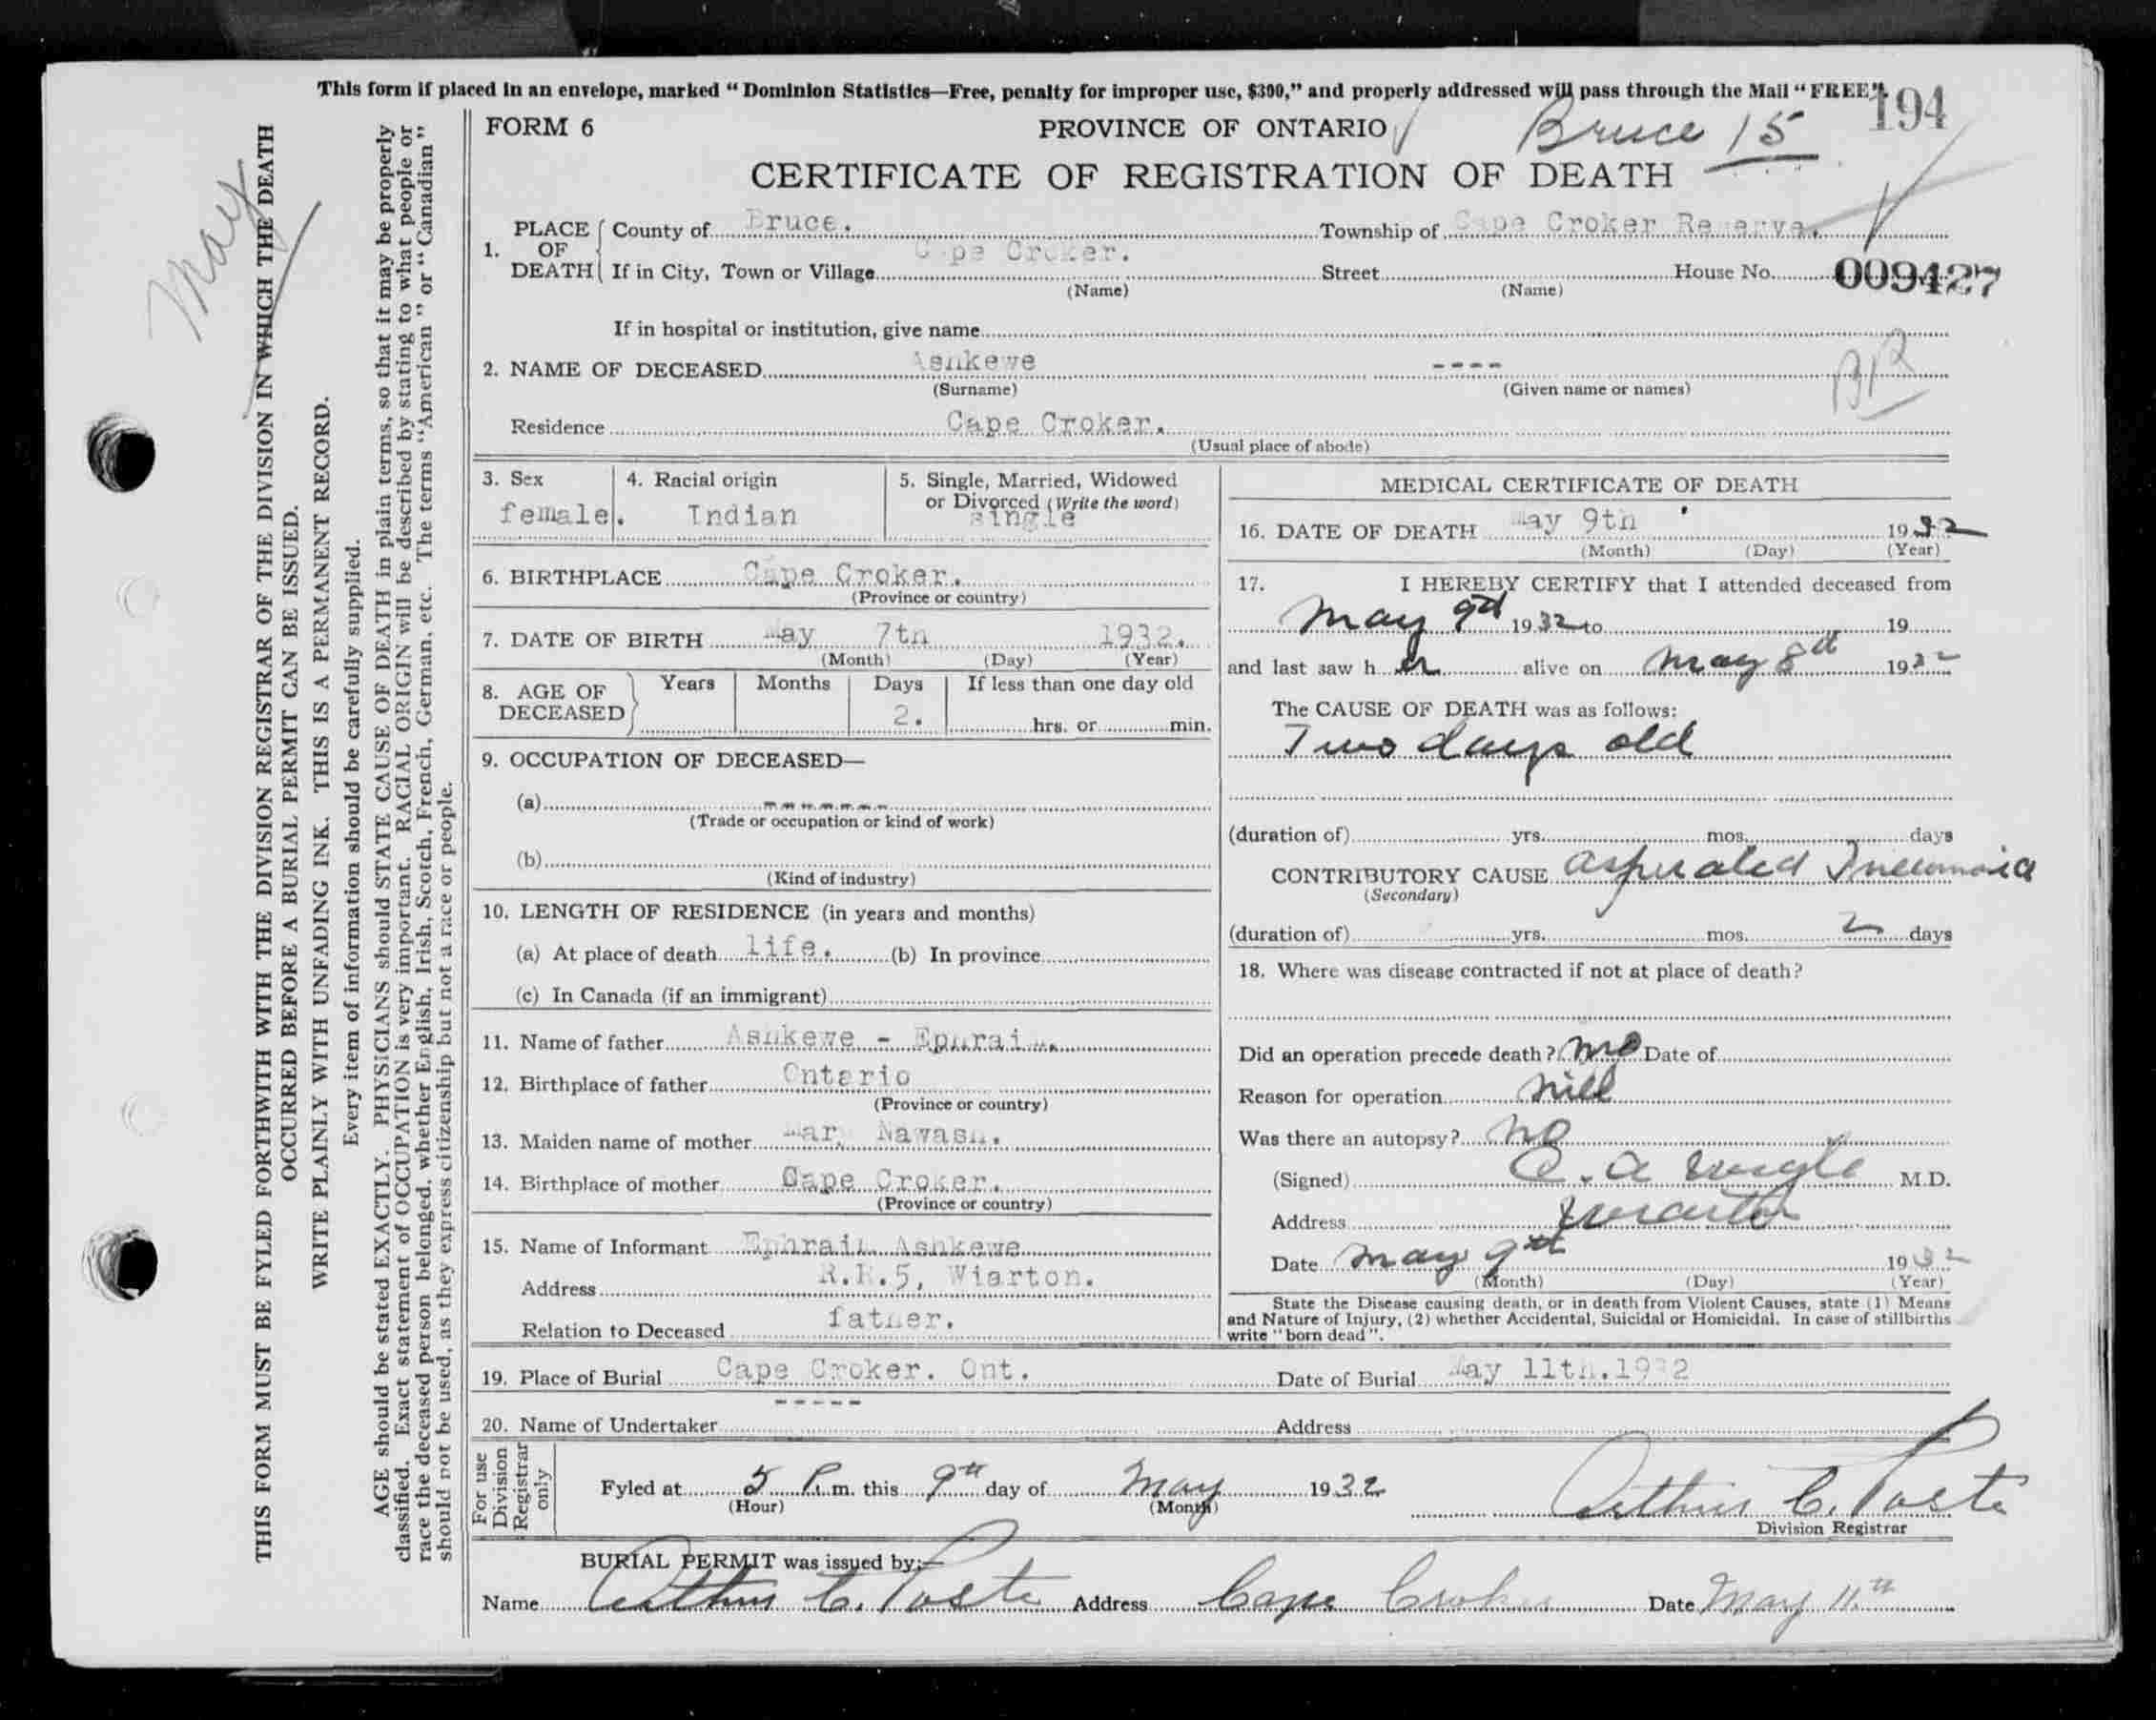 This form if placed in an envelope, marked "Dominion Statistics—Free, penalty for improper use, $300," and properly addressed will pass through the Mail "FREE".
194
FORM 6
PROVINCE OF ONTARIO
Bruce 15
CERTIFICATE OF REGISTRATION OF DEATH
May
THIS FORM MUST BE FYLED FORTHWITH WITH THE DIVISION REGISTRAR OF THE DIVISION IN WHICH THE DEATH
OCCURRED BEFORE A BURIAL PERMIT CAN BE ISSUED.
WRITE PLAINLY WITH UNFADING INK. THIS IS A PERMANENT RECORD.
Every item of information should be carefully supplied.
AGE should be stated EXACTLY. PHYSICIANS should STATE CAUSE OF DEATH in plain terms, so that it may be properly
classified. Exact statement of OCCUPATION is very important. RACIAL ORIGIN will be described by stating to what people or
race the deceased person belonged, whether English, Irish, Scotch, French, German, etc. The terms "American" or "Canadian"
should not be used, as they express citizenship but not a race or people.
1. PLACE OF DEATH
County of Bruce. Township of Cape Croker Reserve.
If in City, Town or Village Cape Croker. Street House No. 009427
(Name) (Name)
If in hospital or institution, give name
2. NAME OF DECEASED Ashkewe ----
(Surname) (Given name or names)
Residence Cape Croker.
(Usual place of abode)
3. Sex 4. Racial origin 5. Single, Married, Widowed
or Divorced (Write the word)
female. Indian single
6. BIRTHPLACE Cape Croker.
(Province or country)
7. DATE OF BIRTH May 7th 1932.
(Month) (Day) (Year)
8. AGE OF DECEASED Years Months Days If less than one day old
2. hrs. or min.
9. OCCUPATION OF DECEASED—
(a) ------
(Trade or occupation or kind of work)
(b)
(Kind of industry)
10. LENGTH OF RESIDENCE (in years and months)
(a) At place of death life. (b) In province
(c) In Canada (if an immigrant)
11. Name of father Ashkewe - Ephraim.
12. Birthplace of father Ontario
(Province or country)
13. Maiden name of mother Mary Nawash.
14. Birthplace of mother Cape Croker.
(Province or country)
15. Name of Informant Ephraim Ashkewe
Address R.R.5, Wiarton.
Relation to Deceased father.
MEDICAL CERTIFICATE OF DEATH
16. DATE OF DEATH May 9th 1932
(Month) (Day) (Year)
17. I HEREBY CERTIFY that I attended deceased from
May 9th 1932 to 19
and last saw her alive on May 8th 1932
The CAUSE OF DEATH was as follows:
Two days old
(duration of) yrs. mos. days
CONTRIBUTORY CAUSE Pneumonia
(Secondary)
(duration of) yrs. mos. 2 days
18. Where was disease contracted if not at place of death?
Did an operation precede death? no Date of
Reason for operation nill
Was there an autopsy? no
(Signed) M.D.
Address Wiarton
Date May 9th 1932
(Month) (Day) (Year)
State the Disease causing death, or in death from Violent Causes, state (1) Means
and Nature of Injury, (2) whether Accidental, Suicidal or Homicidal. In case of stillbirths
write "born dead".
19. Place of Burial Cape Croker. Ont. Date of Burial May 11th.1932
-----
20. Name of Undertaker Address
For use Division Registrar only
Fyled at 5 P.m. this 9th day of May 1932 Arthur C. Poste
(Hour) (Month) Division Registrar
BURIAL PERMIT was issued by:—
Name Arthur C. Poste Address Cape Croker Date May 11th